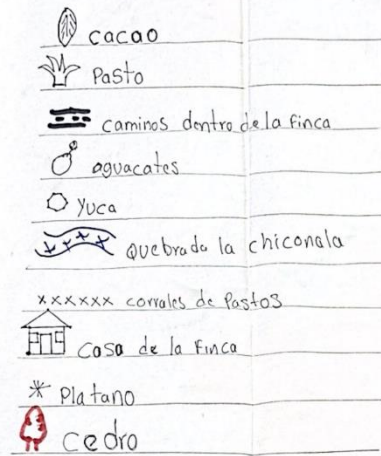 cacao
Pasto
caminos dentro de la finca
aguacates
yuca
quebrada la chiconala
xxxxxx corrales de Pastos
casa de la Finca
Platano
cedro